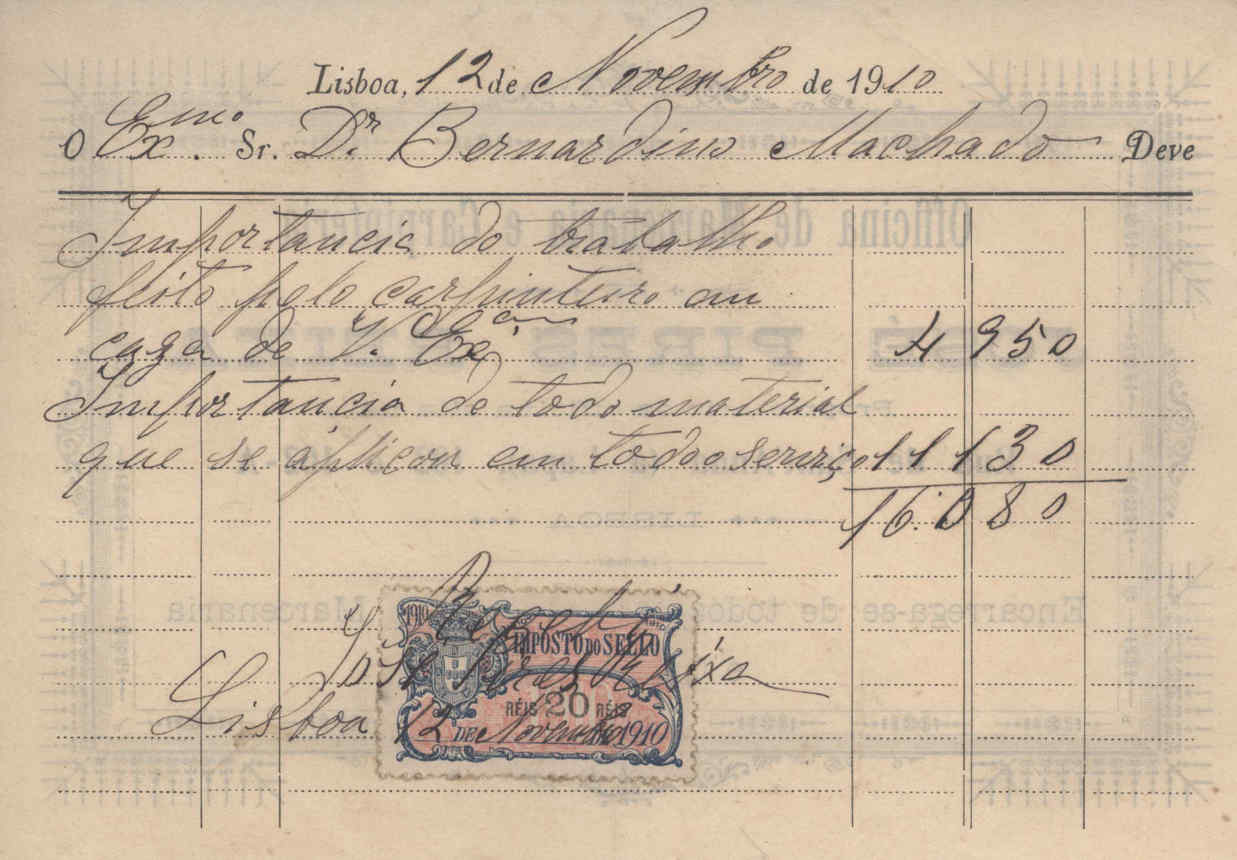 Lisboa, 12 de Novembro de 1910
O Exmo. Sr. Dr. Bernardino Machado Deve
Importancia do trabalho
feito pelo carpinteiro em
caza de V. Exa
Importancia de todo material
que se aplicou em todo o serviço
4 950
11 130
16.080
1910
IMPOSTO DO SELLO
José Pires
RÉIS 20 RÉIS
Lisboa 12 DE Novembro 1910
Officina de Marcenaria e Carpinteria
JOSÉ PIRES
LISBOA
Encarrega-se de todos
Marcenaria